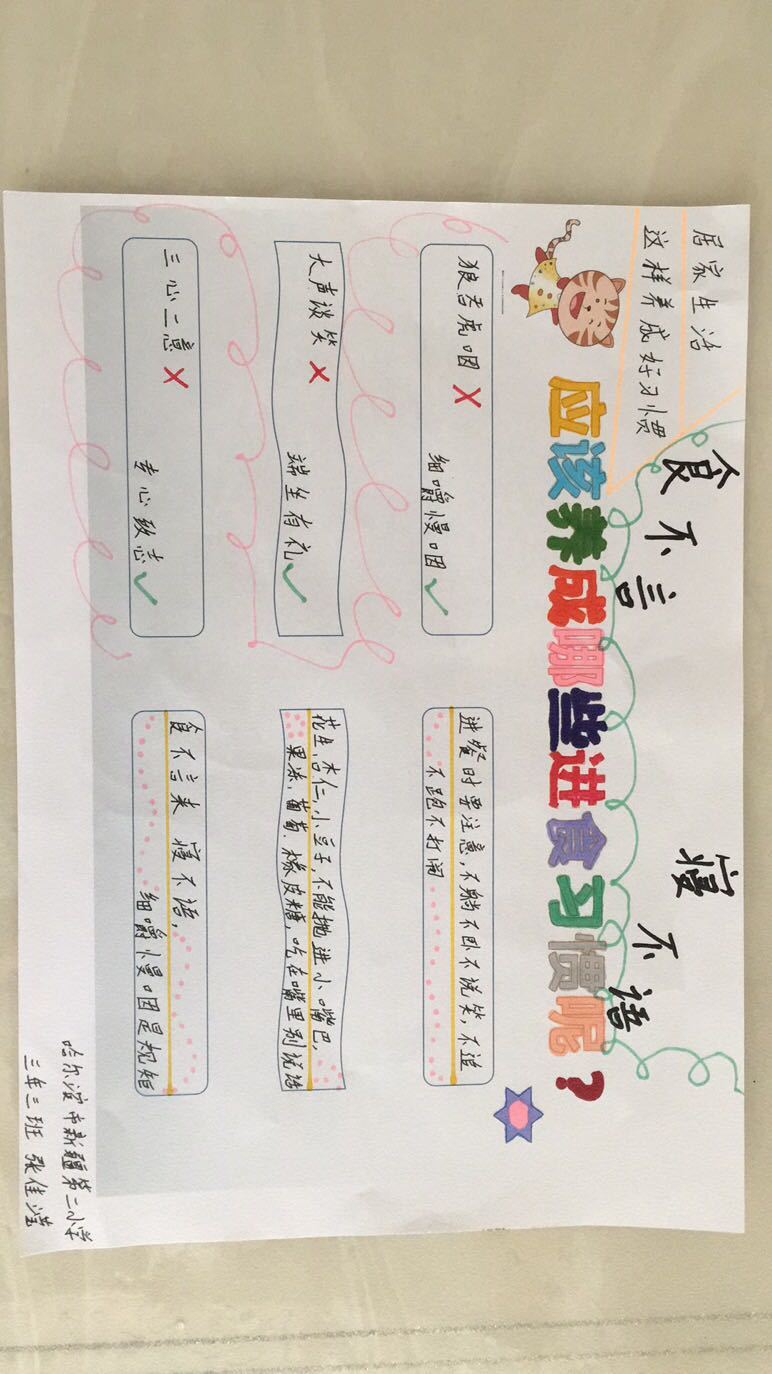 居家生活
这样养成好习惯
食不言
寝不语
应该养成哪些进食习惯呢？
狼吞虎咽 ×
细嚼慢咽 ✓
进餐时要注意，不躺不卧不说笑，不追
不跑不打闹
大声谈笑 ×
端坐有礼 ✓
花生，杏仁，小豆子，不能抛进小嘴巴，
果冻，葡萄，橡皮糖，吃在嘴里别说话
三心二意 ×
专心致志 ✓
食不言来 寝不语，
细嚼慢咽是规矩
哈尔滨市新疆第二小学
三年三班 张佳滢